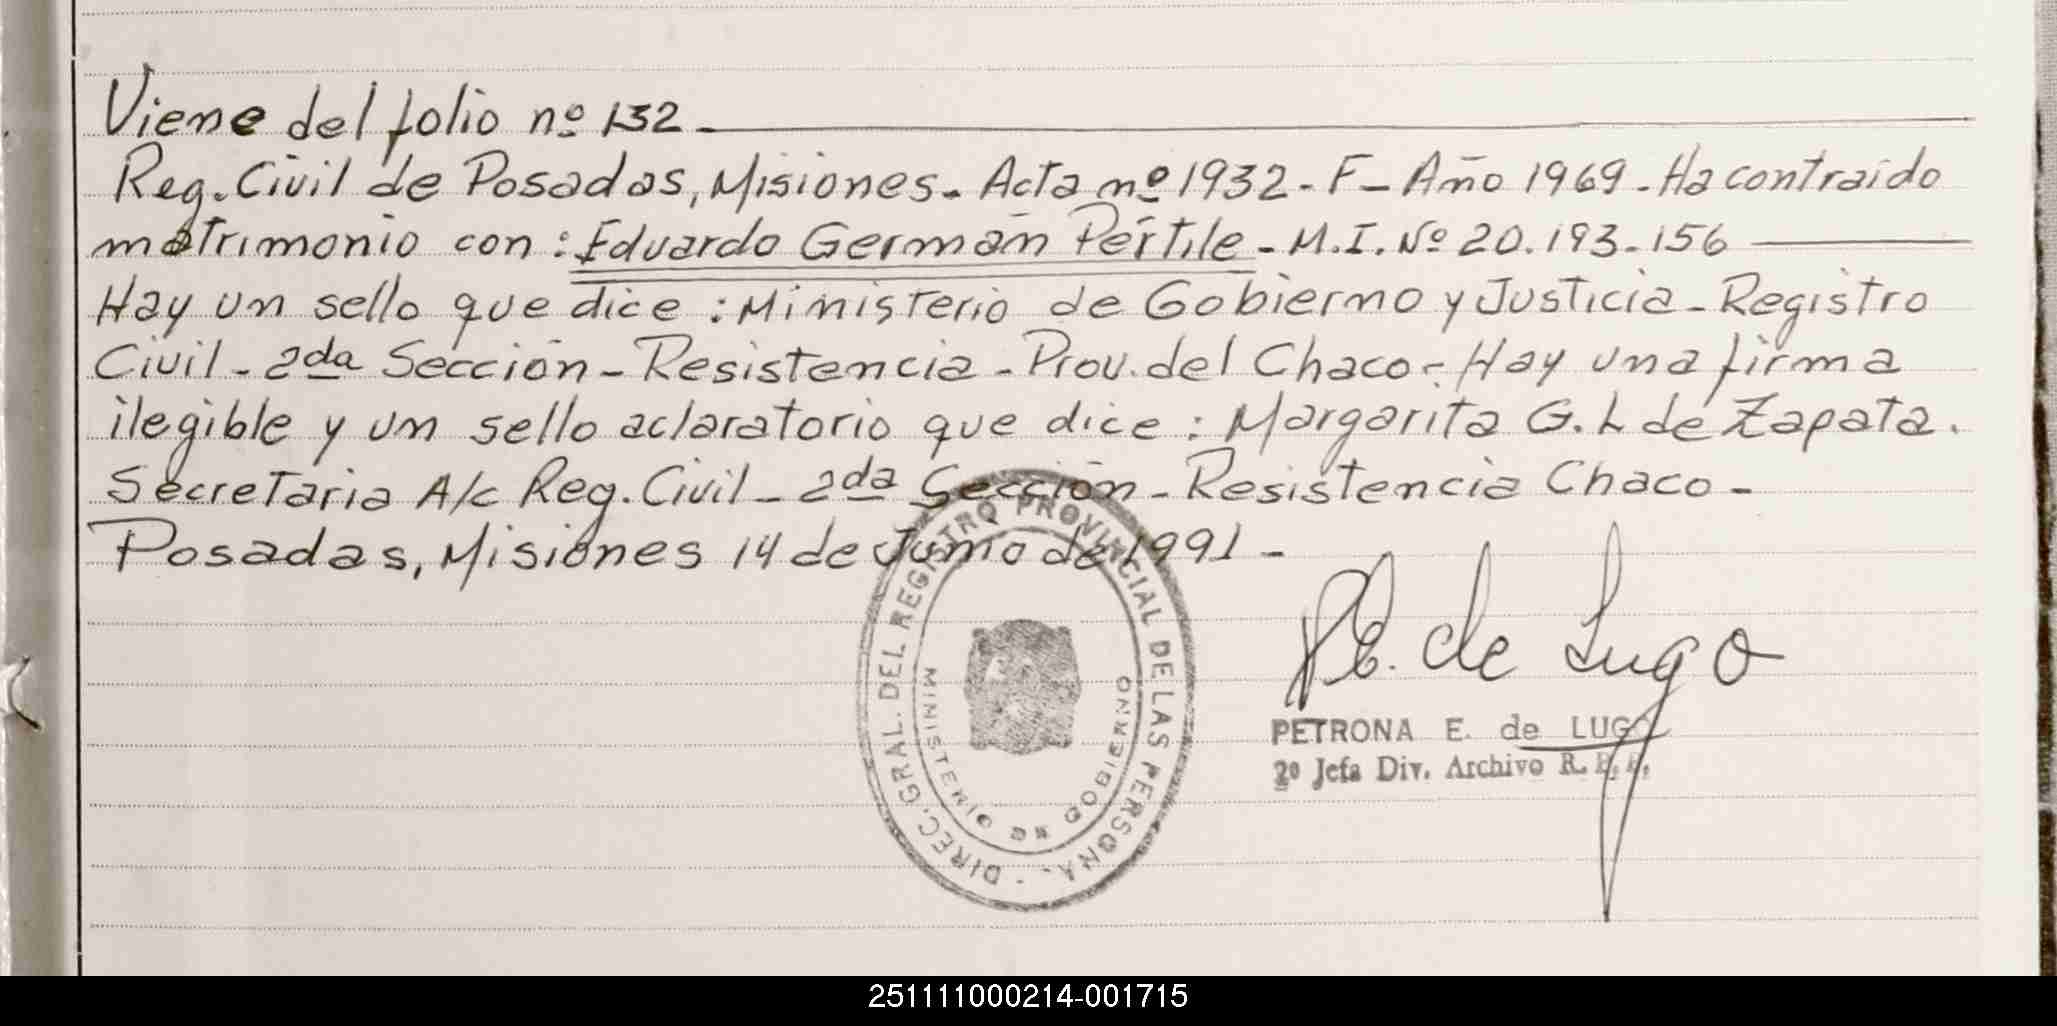 Viene del folio nº 132.
Reg. Civil de Posadas, Misiones. Acta nº 1932 - F - Año 1969 - Ha contraído
matrimonio con: Eduardo Germán Pértile - M.I. Nº 20.193-156
Hay un sello que dice: Ministerio de Gobierno y Justicia - Registro
Civil - 2da Sección - Resistencia - Prov. del Chaco - Hay una firma
ilegible y un sello aclaratorio que dice: Margarita G. L de Zapata.
Secretaria A/c Reg. Civil - 2da Sección - Resistencia Chaco -
Posadas, Misiones 14 de Junio de 1991 -
DIREC. GRAL. DEL REGISTRO PROVINCIAL DE LAS PERSONA.
MINISTERIO DE GOBIERNO
PE. de Lugo
PETRONA E. de LUGO
2º Jefa Div. Archivo R. P. P.
251111000214-001715